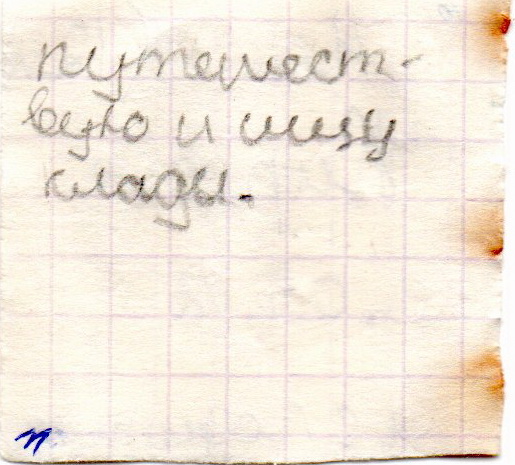 путешест-
вую и ищу
клады.
п